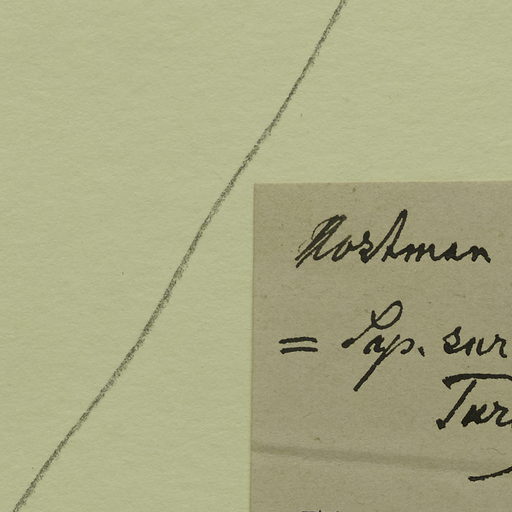 Hostman
= Sap. sur
Tur